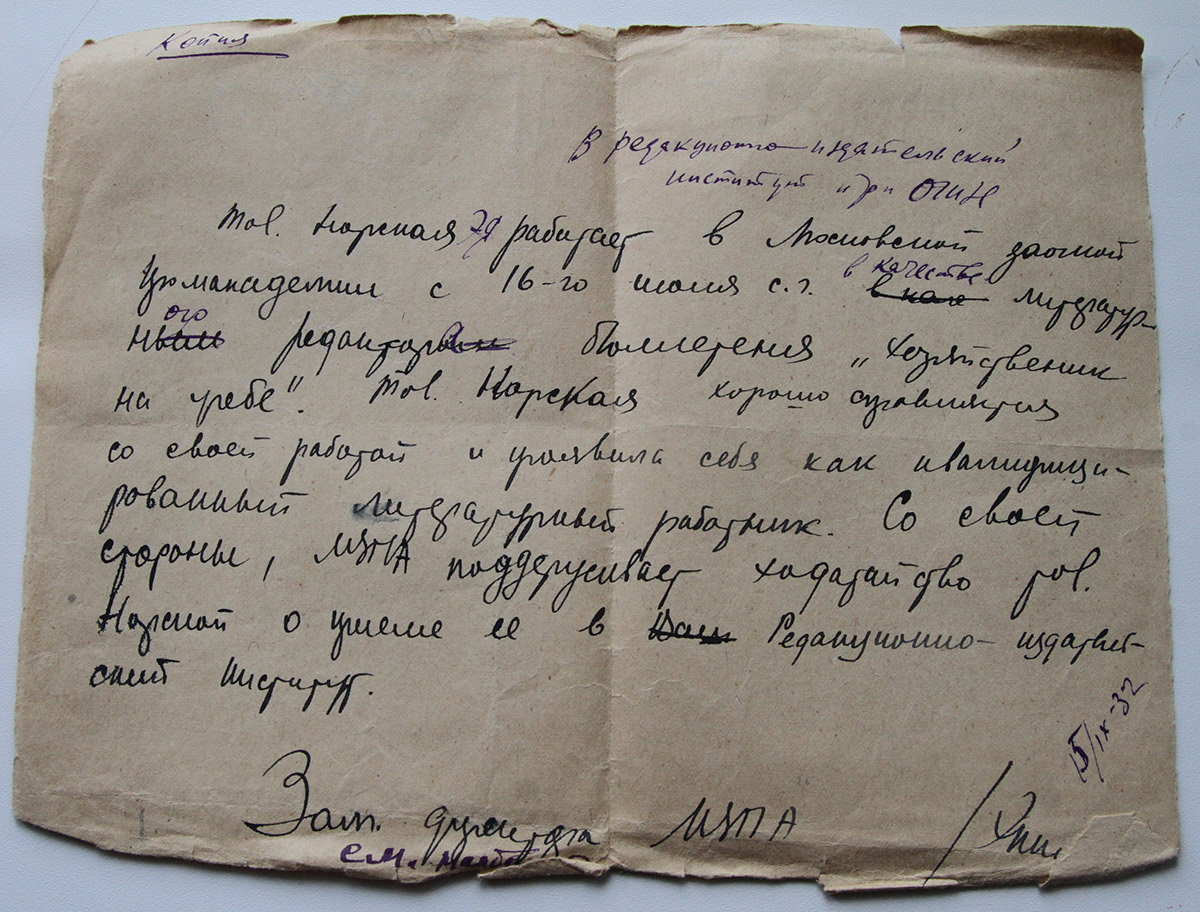 Копия
В редакционно-издательский
институт при ОГИЗ
Тов. Норская работает в Московской заочной
Промакадемии с 16-го июля с.г. в качестве литератур-
ного редактора бюллетеня „Хозяйственник
на учебе". Тов. Норская хорошо справляется
со своей работой и проявила себя как квалифици-
рованный литературный работник. Со своей
стороны, МЗПА поддерживает ходатайство тов.
Норской о приеме ее в Редакционно-издатель-
ский Институт.
15/IX-32
Зам. директора МЗПА
См. на об